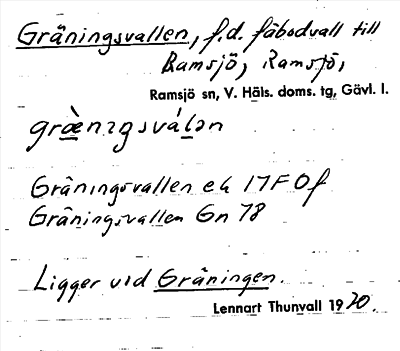 Gräningsvallen, f.d. fäbodvall till
Ramsjö, Ramsjö,
Ramsjö sn, V. Häls. doms. tg, Gävl. l.
græ̀nıgsválən
Gräningsvallen ek 17F 0f
Gräningsvallen Gn 78
Ligger vid Gräningen.
Lennart Thunvall 1920.